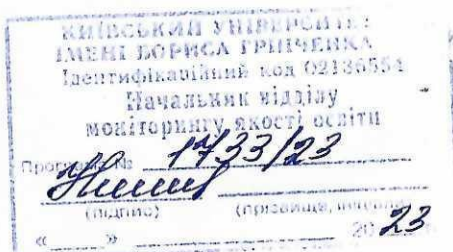 КИЇВСЬКИЙ УНІВЕРСИТЕТ
ІМЕНІ БОРИСА ГРІНЧЕНКА
Ідентифікаційний код 02136554
Начальник відділу
моніторингу якості освіти
Програма № 1733/23
(підпис) (прізвище,
« » 20 23